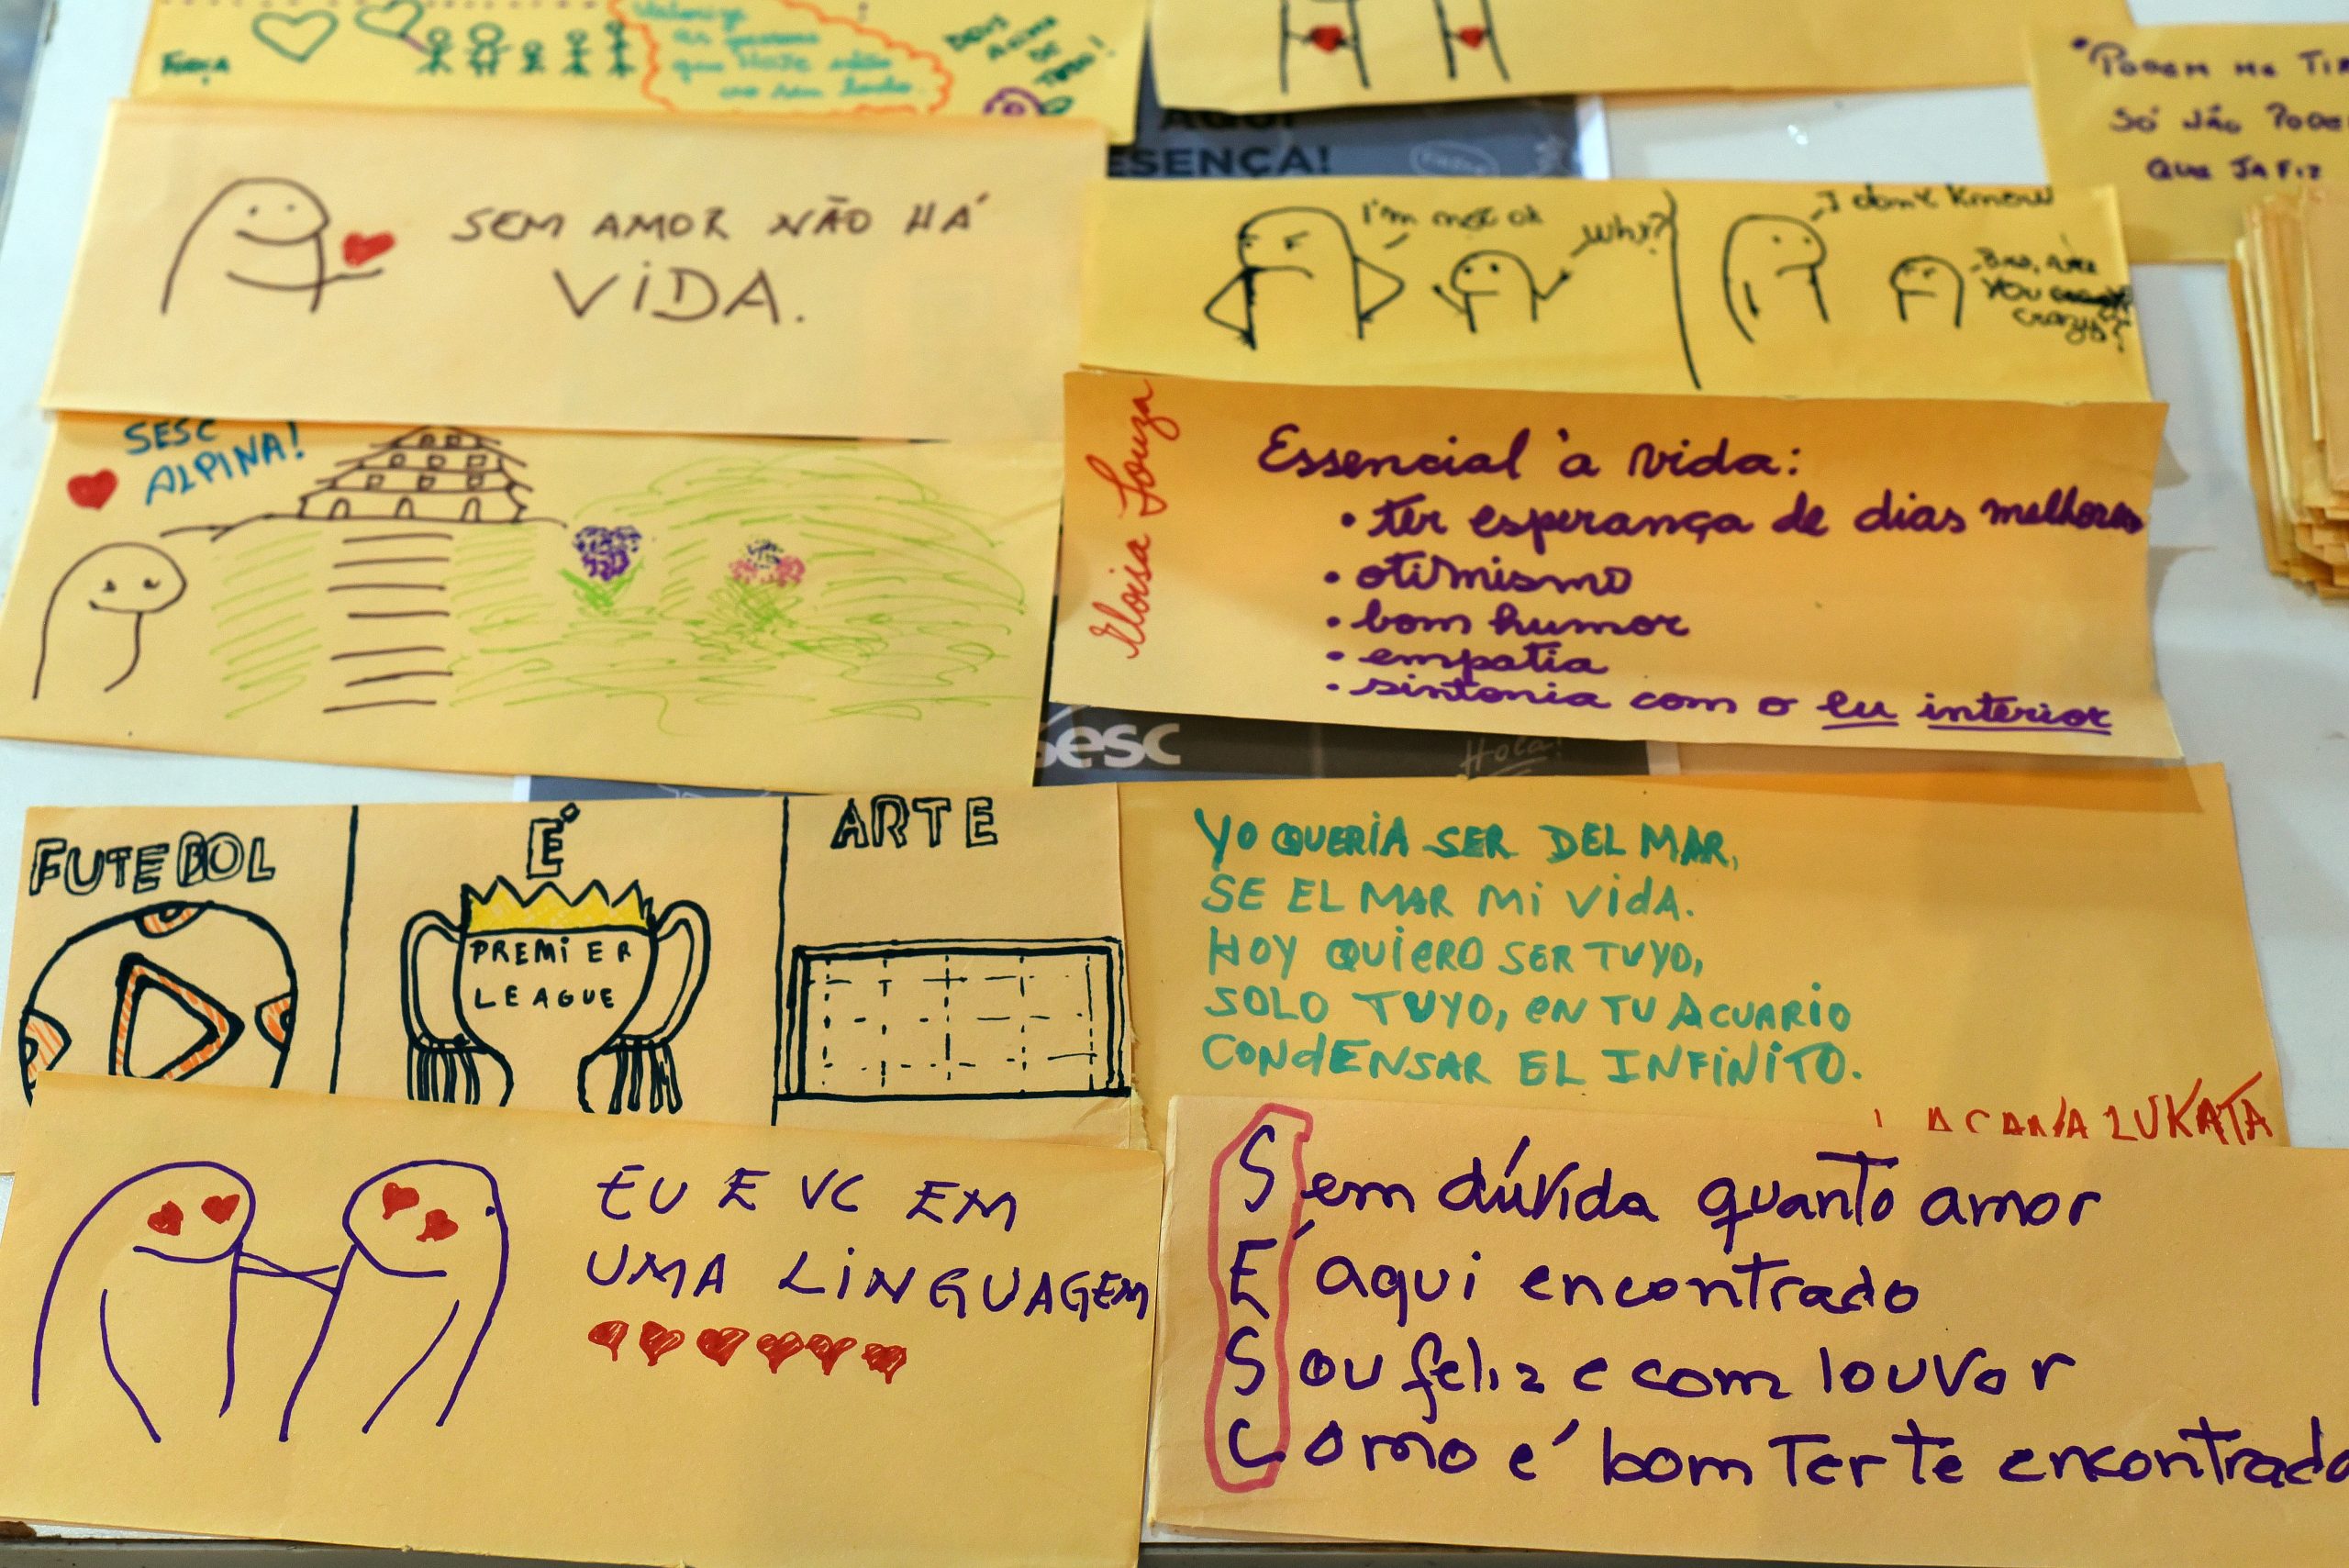 FORÇA
Valorize
as pessoas
que HOJE estão
ao seu lado.
ESENÇA!
"PODEM ME TIR
SÓ NÃO PODE
QUE JÁ FIZ
SEM AMOR NÃO HÁ
VIDA.
I'm not ok
Why?
I don't know
Bro, are
you
crazy?
SESC
ALPINA!
Eloisa Souza
Essencial à vida:
• ter esperança de dias melhores
• otimismo
• bom humor
• empatia
• sintonia com o eu interior
Sesc
Hola!
FUTEBOL
É
ARTE
PREMIER
LEAGUE
YO QUERIA SER DEL MAR,
SE EL MAR MI VIDA.
HOY QUIERO SER TUYO,
SOLO TUYO, EN TU ACUARIO
CONDENSAR EL INFINITO.
LUKATA
EU E VC EM
UMA LINGUAGEM
Sem dúvida quanto amor
É aqui encontrado
Sou feliz e com louvor
Como é bom ter te encontrado